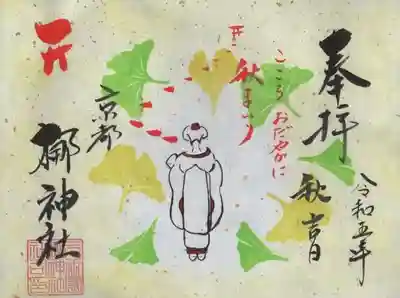 奉拝
令和五年
秋吉日
こころおだやかに
秋まつり
京都
梛神社